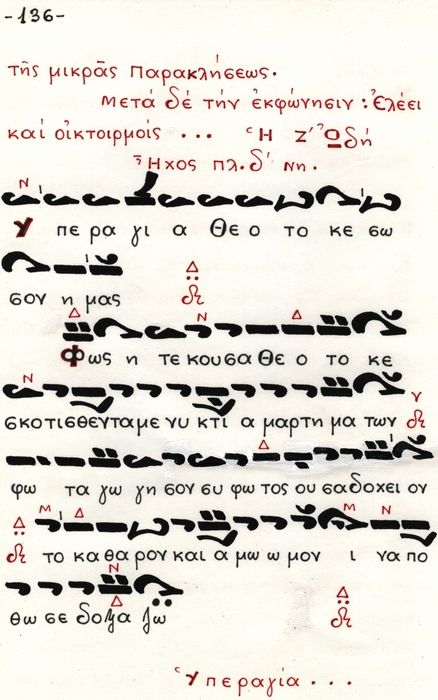 -136-
τῆς μικρᾶς Παρακλήσεως.
μετά δέ τήν ἐκφώνησιν: Ἐλέει
καί οἰκτοιρμοίς ... Ἡ Ζ' Ὠδή
Ἦχος πλ. δ' Νη.
Ν
Υ πε ρα γι α Θε ο το κε σω
Δ
σον η μας
Δ Ν Δ
Φως η τε κουσα Θε ο το κε
Ν
σκοτισθενταμε νυ κτι α μαρτη μα των
Δ
φω τα γω γη σον συ φω τος ου σα δοχει ον
Μ Δ Μ Ν
το κα θα ρον και α μω ω μον ι να πο
Ν
Δ Δ
θω σε δοξα ζω
Ὑπεραγία ...